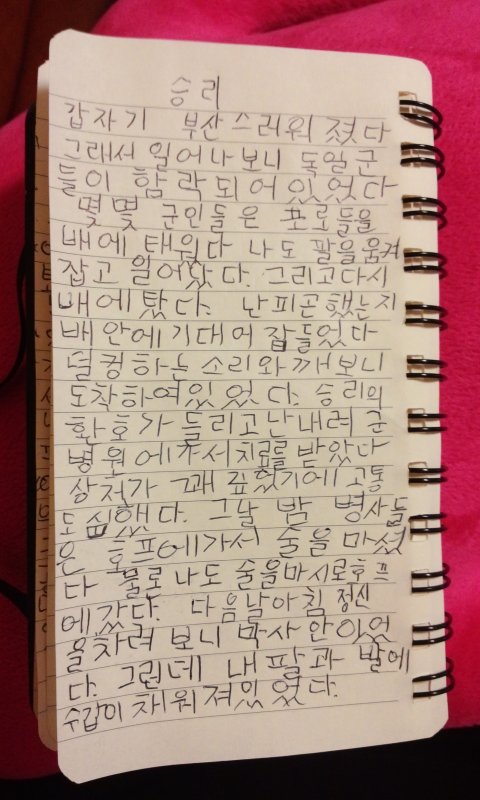 승리
갑자기 부산스러워졌다
그래서 일어나보니 독일군
들이 함락되어있었다
몇몇 군인들은 포로들을
배에 태웠다 나도 팔을움켜
잡고 일어났다. 그리고다시
배에 탔다. 난피곤했는지
배안에기대어 잠들었다
덜컹하는소리와깨보니
도착하여있었다. 승리의
환호가 들리고난내려 군
병원에가서치료를 받았다
상처가 꽤 깊었기에고통
도심했다. 그날 밤 병사들
은 호프에가서 술을마셨
다 물론나도술을마시로호프
에갔다. 다음날아침 정신
을차려보니 막사안이었
다. 그런데 내팔과 발에
수갑이채워져있었다.